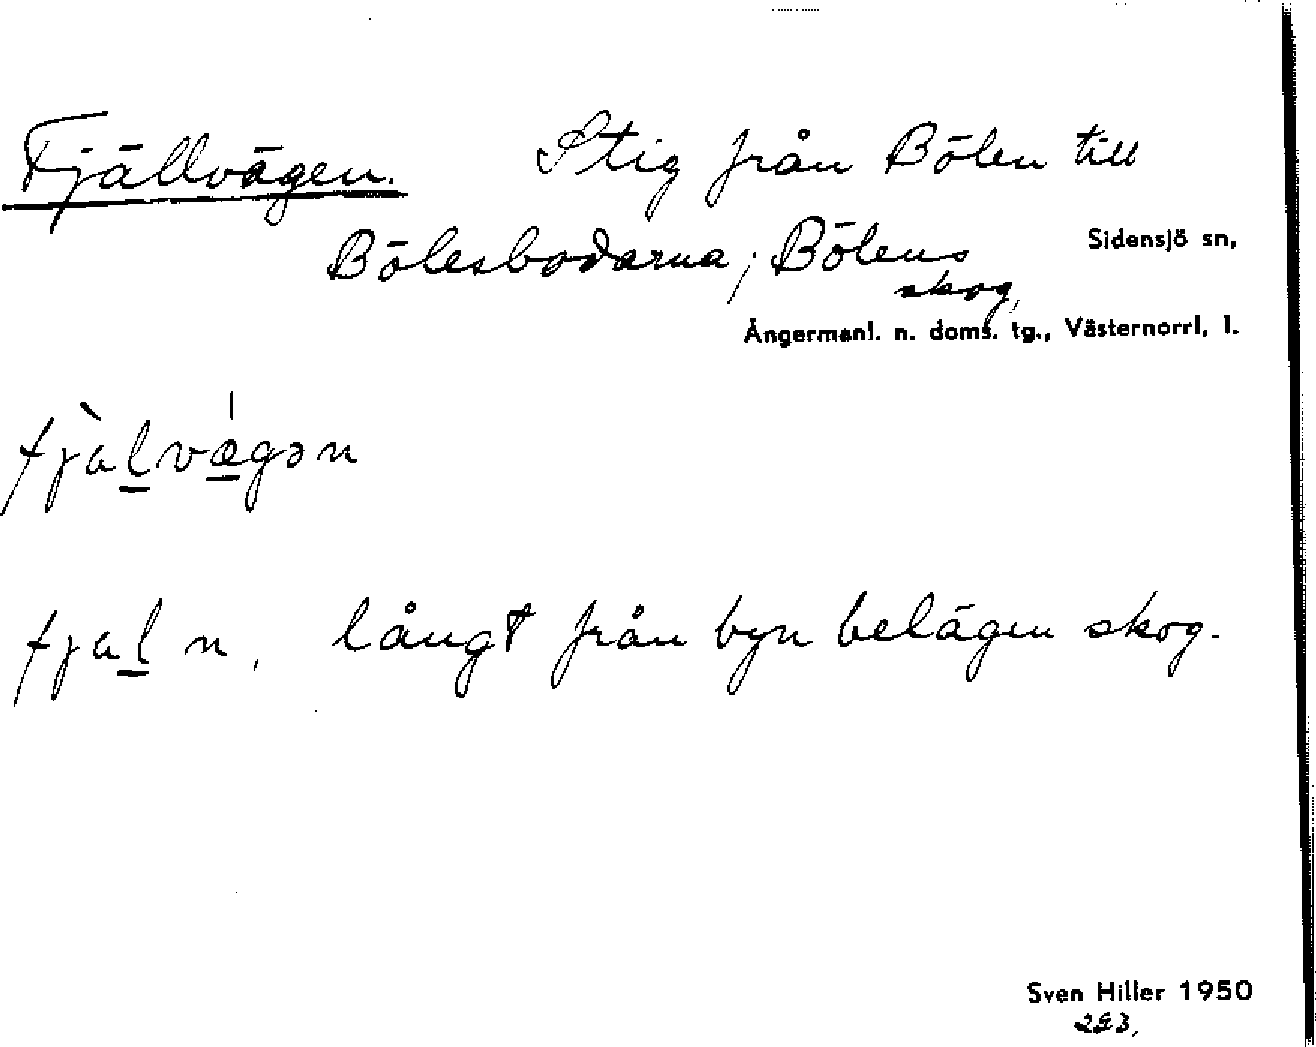 Fjällvägen. Stig från Bölen till
Bölesbodarna; Bölens
skog,
Sidensjö sn,
Ångermanl. n. doms. tg., Västernorrl. l.
fjàlvǽgən
fjal n, långt från byn belägen skog.
Sven Hiller 1950